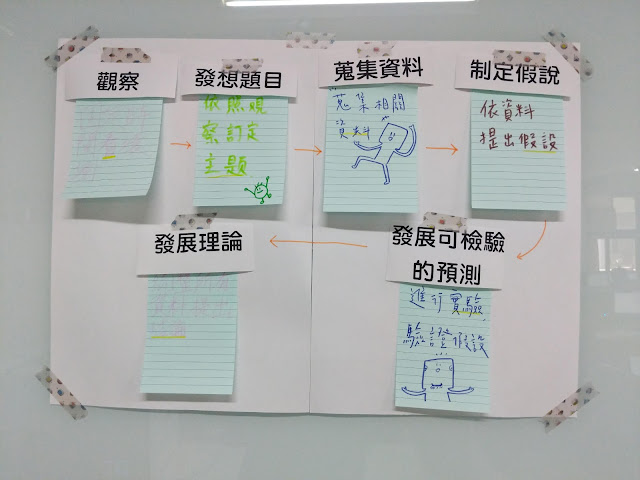 觀察
發想題目
依照觀
察訂定
主題
蒐集資料
蒐集相關
資料
制定假說
依資料
提出假設
發展可檢驗
的預測
進行實驗,
驗證假設
發展理論